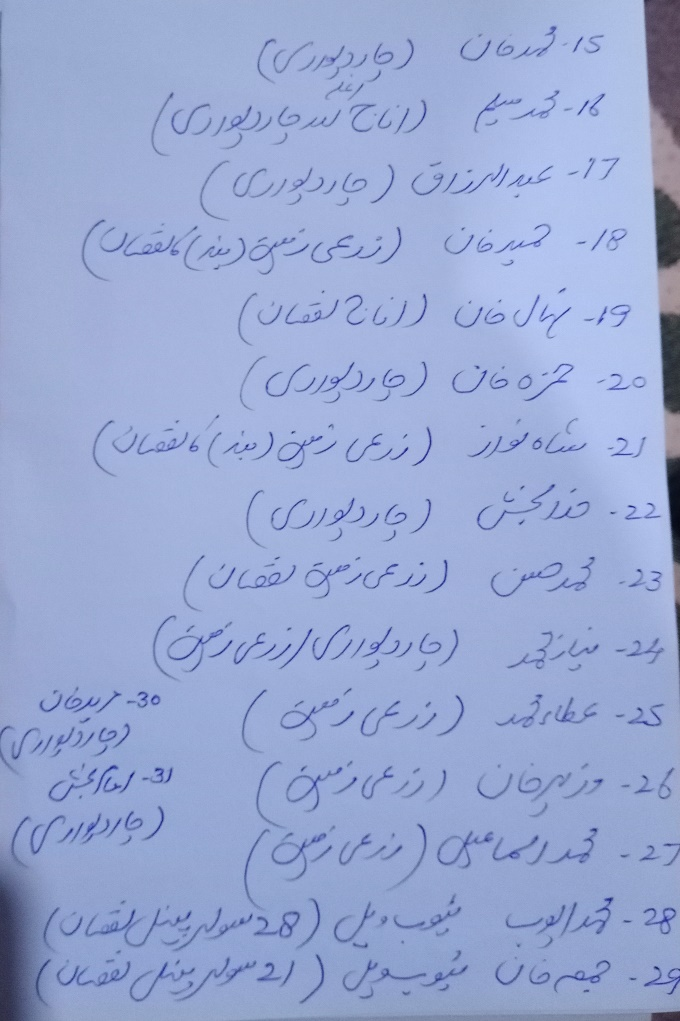 15- محمد خان (چاردیواری)
16- محمد سلیم (اناج اور چاردیواری)
17- عبدالرزاق (چاردیواری)
18- حمید خان (زرعی زمین (بند) کا نقصان)
19- نہال خان (اناج نقصان)
20- حمزہ خان (چاردیواری)
21- شاہ نواز (زرعی زمین (بند) کا نقصان)
22- خدا بخش (چاردیواری)
23- محمد حسین (زرعی زمین نقصان)
24- نیاز محمد (چاردیواری / زرعی زمین)
25- عطاء محمد (زرعی زمین)
26- وزیر خان (زرعی زمین)
27- محمد اسماعیل (زرعی زمین)
28- محمد ایوب ٹیوب ویل (28 سولر پینل نقصان)
29- جمعہ خان ٹیوب ویل (21 سولر پینل نقصان)
30- خان
(چاردیواری)
31- امام بخش
(چاردیواری)